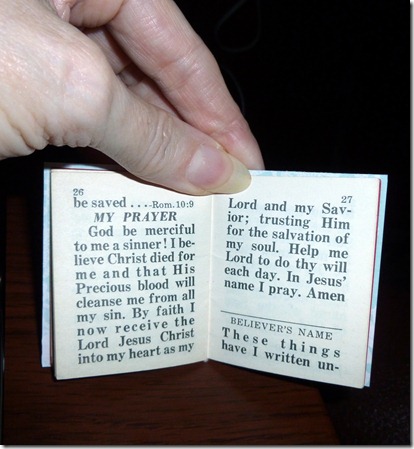 26
be saved . . . .-Rom. 10:9
MY PRAYER
God be merciful
to me a sinner! I be-
lieve Christ died for
me and that His
Precious blood will
cleanse me from all
my sin. By faith I
now receive the
Lord Jesus Christ
into my heart as my
27
Lord and my Sav-
ior; trusting Him
for the salvation of
my soul. Help me
Lord to do thy will
each day. In Jesus'
name I pray. Amen
BELIEVER'S NAME
These things
have I written un-